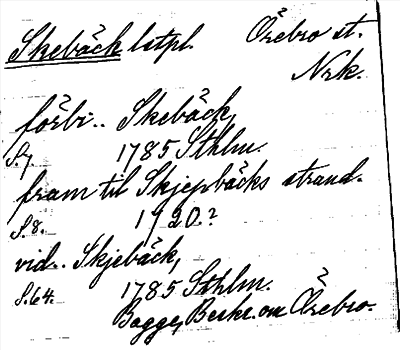 Skebäck lstpl. Örebro st.
Nrk.
förbi.. Skebäck,
S.7. 1785 Sthlm.
fram til Skjepbäcks strand.
S.8. 1720.?
vid.. Skjebäck,
S.64. 1785 Sthlm.
Bagge, Beskr. om Örebro.